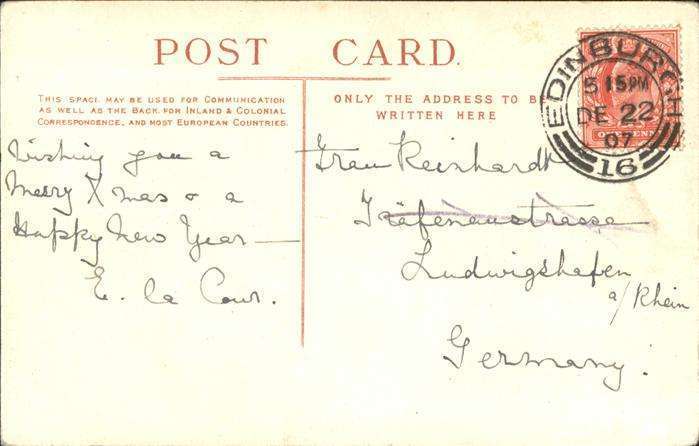 POST CARD.
THIS SPACE MAY BE USED FOR COMMUNICATION
AS WELL AS THE BACK, FOR INLAND & COLONIAL
CORRESPONDENCE, AND MOST EUROPEAN COUNTRIES.
ONLY THE ADDRESS TO BE
WRITTEN HERE
Wishing you a
Merry Xmas & a
Happy New Year —
E. la Cour.
Frau Reinhardt
Gräfenaustrasse
Ludwigshafen
a/Rhein
Germany.
EDINBURGH
5 15PM
DE 22
07
16
ONE PENNY